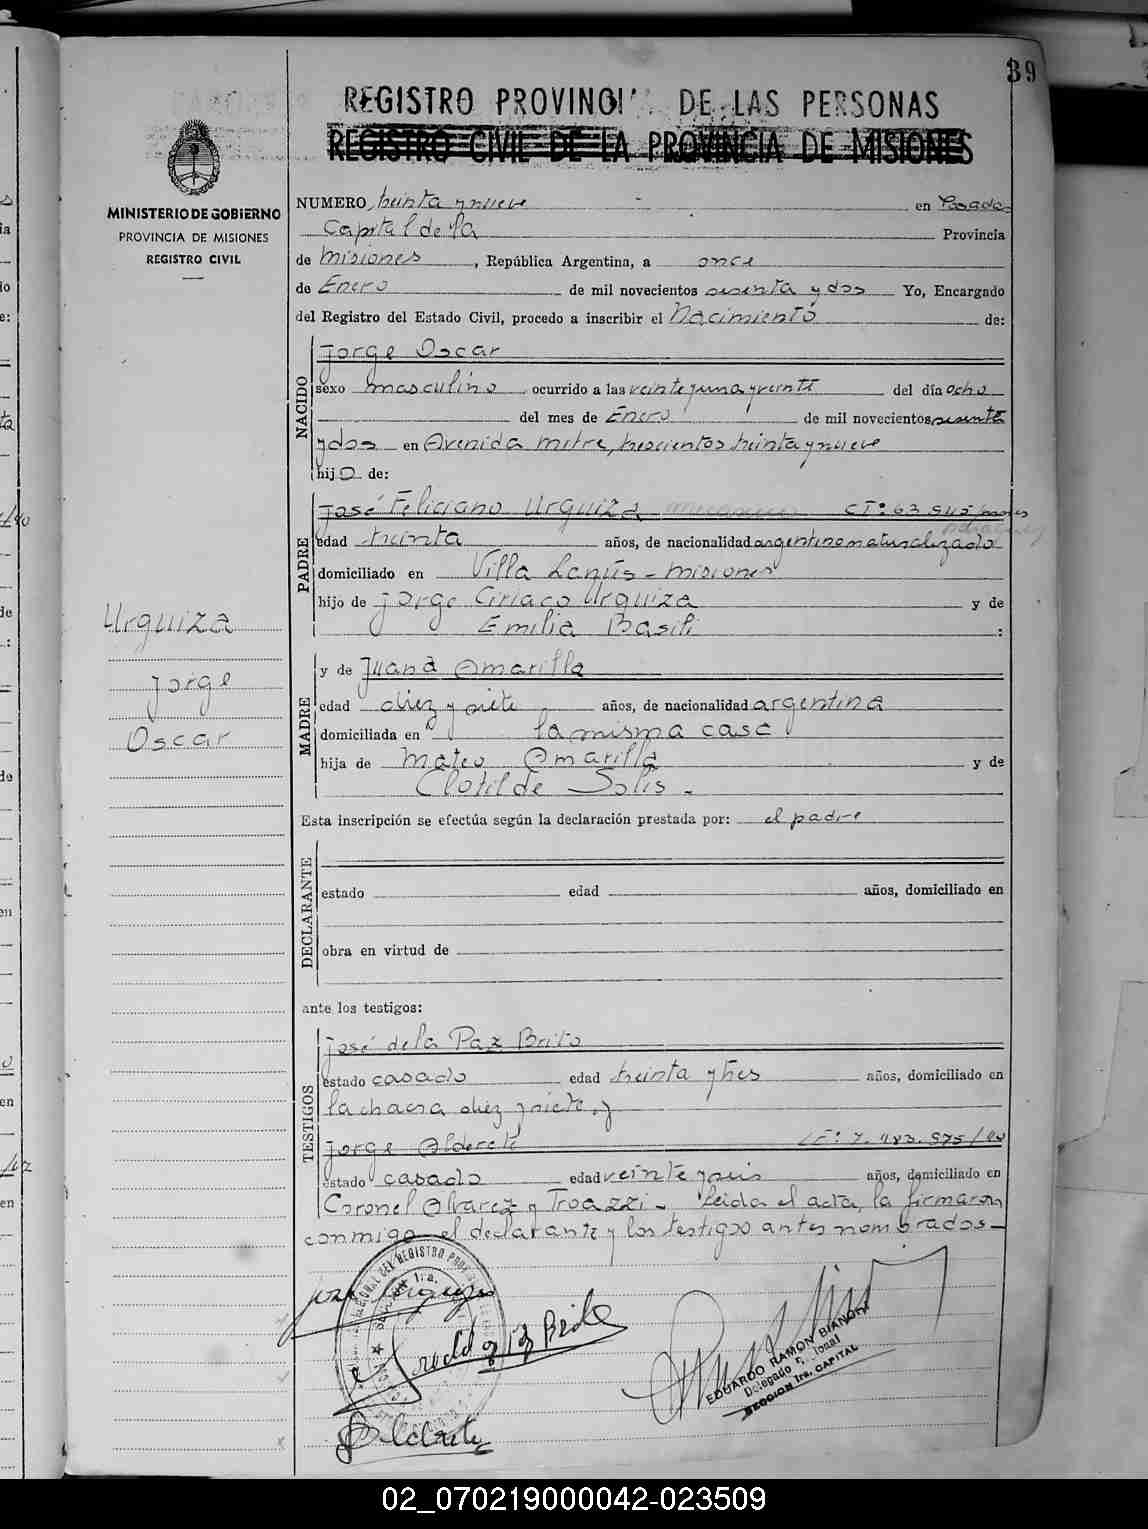 39
REGISTRO PROVINCIAL DE LAS PERSONAS
REGISTRO CIVIL DE LA PROVINCIA DE MISIONES
MINISTERIO DE GOBIERNO
PROVINCIA DE MISIONES
REGISTRO CIVIL
NUMERO treinta y nueve en Posadas
Capital de la Provincia
de Misiones, República Argentina, a once
de Enero de mil novecientos sesenta y dos Yo, Encargado
del Registro del Estado Civil, procedo a inscribir el Nacimiento de:
NACIDO
Jorge Oscar
sexo masculino ocurrido a las veinte y una y veinte del día ocho
del mes de Enero de mil novecientos sesenta
y dos en Avenida Mitre, trescientos treinta y nueve
hijo de:
PADRE
José Feliciano Urquiza CI: 63.545/
edad treinta años, de nacionalidad argentino naturalizado
domiciliado en Villa Lanús - Misiones
hijo de Jorge Ciriaco Urquiza y de
Emilia Basili :
Urquiza
Jorge
Oscar
MADRE
y de Juana Amarilla
edad diez y siete años, de nacionalidad argentina
domiciliada en la misma casa
hija de Mateo Amarilla y de
Clotilde Solis -
Esta inscripción se efectúa según la declaración prestada por: el padre
DECLARANTE
estado edad años, domiciliado en
obra en virtud de
ante los testigos:
TESTIGOS
José de la Paz Brito
estado casado edad treinta y tres años, domiciliado en
la chacra diez y siete, y
Jorge Alderete LE: 7.483.575/
estado casado edad veinte y seis años, domiciliado en
Coronel Alvarez y Troazzi -, leida el acta, la firmaron
conmigo el declarante y los testigos antes nombrados -
EDUARDO RAMON BIANCHI
SECCION 1ra. CAPITAL
02_070219000042-023509